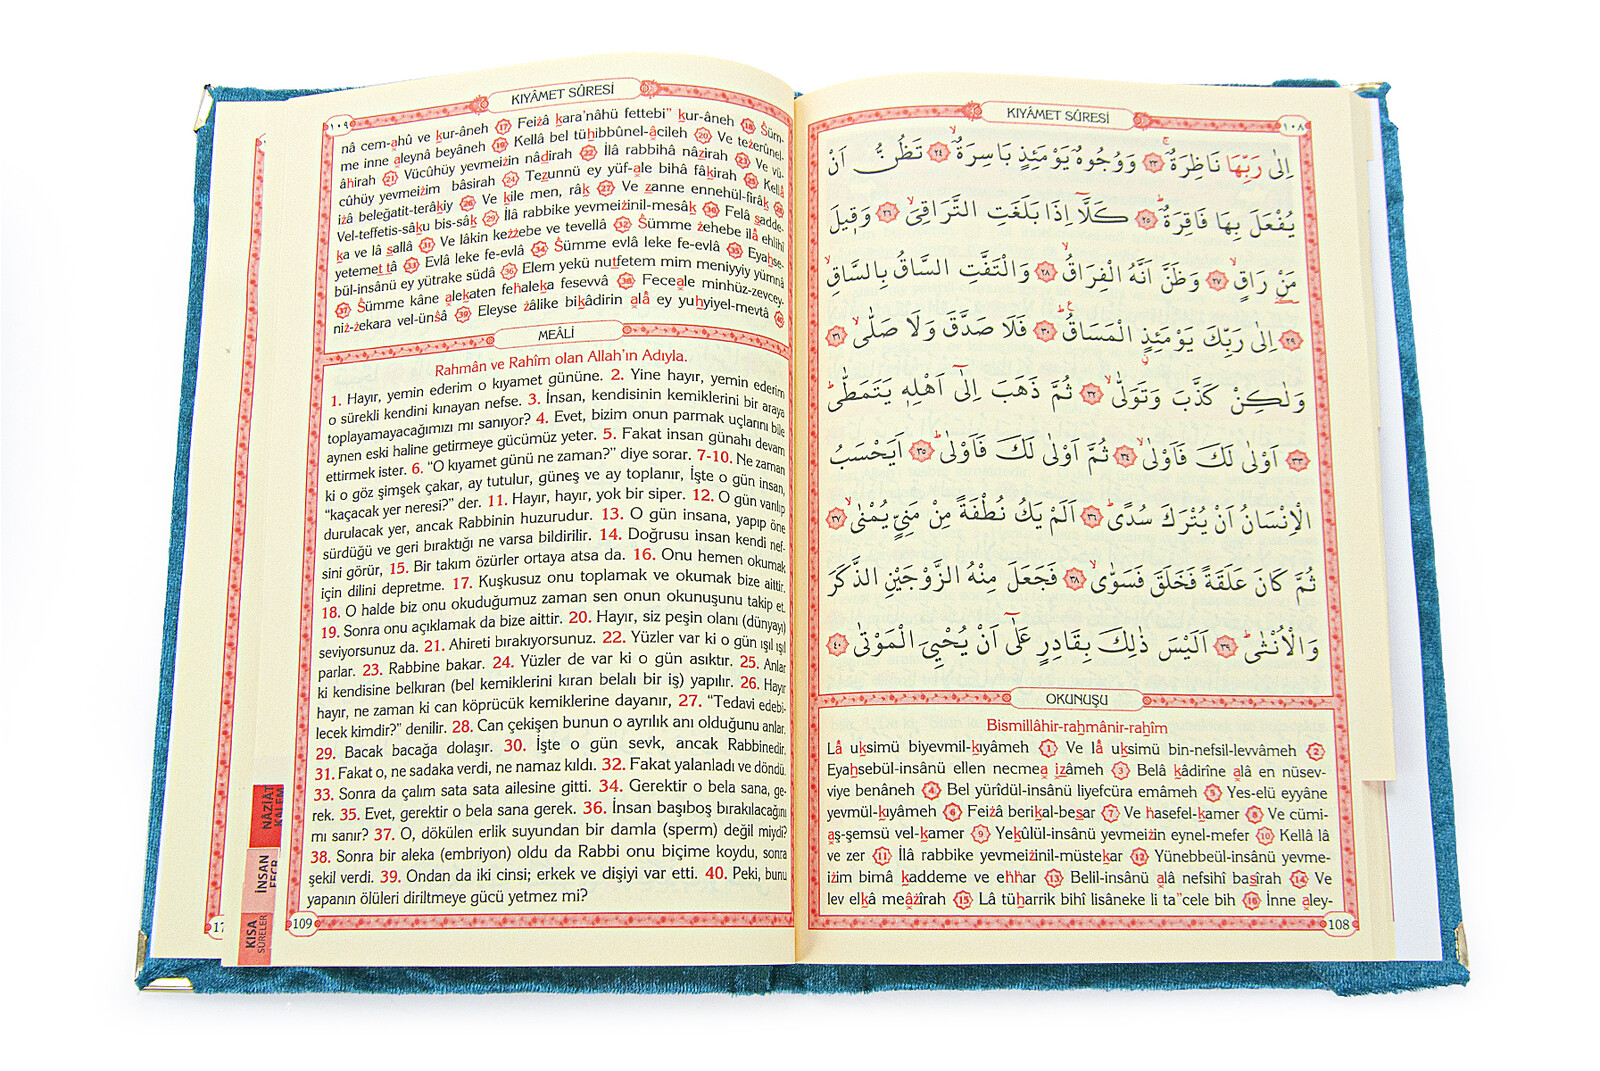 KIYÂMET SÛRESİ
١٠٨
اِلٰى رَبِّهَا نَاظِرَةٌۚ ﴿٢٣﴾ وَوُجُوهٌ يَوْمَئِذٍ بَاسِرَةٌۙ ﴿٢٤﴾ تَظُنُّ اَنْ
يُفْعَلَ بِهَا فَاقِرَةٌۜ ﴿٢٥﴾ كَلَّٓا اِذَا بَلَغَتِ التَّرَاقِيَۙ ﴿٢٦﴾ وَق۪يلَ
مَنْ رَاقٍۙ ﴿٢٧﴾ وَظَنَّ اَنَّهُ الْفِرَاقُۙ ﴿٢٨﴾ وَالْتَفَّتِ السَّاقُ بِالسَّاقِۙ
﴿٢٩﴾ اِلٰى رَبِّكَ يَوْمَئِذٍ الْمَسَاقُۜ ﴿٣٠﴾ فَلَا صَدَّقَ وَلَا صَلّٰىۙ ﴿٣١﴾
وَلٰكِنْ كَذَّبَ وَتَوَلّٰىۙ ﴿٣٢﴾ ثُمَّ ذَهَبَ اِلٰٓى اَهْلِه۪ يَتَمَطّٰىۜ
﴿٣٣﴾ اَوْلٰى لَكَ فَاَوْلٰىۙ ﴿٣٤﴾ ثُمَّ اَوْلٰى لَكَ فَاَوْلٰىۜ ﴿٣٥﴾ اَيَحْسَبُ
الْاِنْسَانُ اَنْ يُتْرَكَ سُدًىۜ ﴿٣٦﴾ اَلَمْ يَكُ نُطْفَةً مِنْ مَنِيٍّ يُمْنٰىۙ ﴿٣٧﴾
ثُمَّ كَانَ عَلَقَةً فَخَلَقَ فَسَوّٰىۙ ﴿٣٨﴾ فَجَعَلَ مِنْهُ الزَّوْجَيْنِ الذَّكَرَ
وَالْاُنْثٰىۜ ﴿٣٩﴾ اَلَيْسَ ذٰلِكَ بِقَادِرٍ عَلٰٓى اَنْ يُحْيِيَ الْمَوْتٰى ﴿٤٠﴾
OKUNUŞU
Bismillâhir-rahmânir-rahîm
Lâ uksimü biyevmil-kıyâmeh 1 Ve lâ uksimü bin-nefsil-levvâmeh 2
Eyahsebül-insânü ellen necmea ızâmeh 3 Belâ kâdirîne alâ en nüsev-
viye benâneh 4 Bel yürîdül-insânü liyefcüra emâmeh 5 Yes-elü eyyâne
yevmül-kıyâmeh 6 Feiżâ berikal-besar 7 Ve hasefel-kamer 8 Ve cümi-
aş-şemsü vel-kamer 9 Yekûlül-insânü yevmeiżin eynel-mefer 10 Kellâ lâ
ve zer 11 İlâ rabbike yevmeiżinil-müstekar 12 Yünebbeül-insânü yevme-
iżim bimâ kaddeme ve ehhar 13 Belil-insânü alâ nefsihî basîrah 14 Ve
lev elkâ meâżîrah 15 Lâ tüharrik bihî lisâneke li ta"cele bih 16 İnne aley-
108
KIYÂMET SÛRESİ
١٠٩
nâ cem-ahû ve kur-âneh 17 Feiżâ kara'nâhü fettebi" kur-âneh 18 Śüm-
me inne aleynâ beyâneh 19 Kellâ bel tühibbûnel-âcileh 20 Ve teżerûnel-
âhirah 21 Vücûhüy yevmeiżin nâdirah 22 İlâ rabbihâ nâzirah 23 Ve vü-
cûhüy yevmeiżim bâsirah 24 Tezunnü ey yüf-ale bihâ fâkirah 25 Kellâ
iżâ beleğatit-terâkıy 26 Ve kile men, râk 27 Ve zanne ennehül-firâk 28
Vel-teffetis-sâku bis-sâk 29 İlâ rabbike yevmeiżinil-mesâk 30 Felâ sadde-
ka ve lâ sallâ 31 Ve lâkin keżżebe ve tevellâ 32 Śümme żehebe ilâ ehlihî
yetemettâ 33 Evlâ leke fe-evlâ 34 Śümme evlâ leke fe-evlâ 35 Eyahse-
bül-insânü ey yütrake südâ 36 Elem yekü nutfetem mim meniyyiy yümnâ
37 Śümme kâne alekaten fehaleka fesevvâ 38 Feceale minhüz-zevcey-
niż-żekara vel-ünśâ 39 Eleyse żâlike bikâdirin alâ ey yuhyiyel-mevtâ 40
MEÂLİ
Rahmân ve Rahîm olan Allah'ın Adıyla.
1. Hayır, yemin ederim o kıyamet gününe. 2. Yine hayır, yemin ederim
o sürekli kendini kınayan nefse. 3. İnsan, kendisinin kemiklerini bir araya
toplayamayacağımızı mı sanıyor? 4. Evet, bizim onun parmak uçlarını bile
aynen eski haline getirmeye gücümüz yeter. 5. Fakat insan günahı devam
ettirmek ister. 6. “O kıyamet günü ne zaman?” diye sorar. 7-10. Ne zaman
ki o göz şimşek çakar, ay tutulur, güneş ve ay toplanır, İşte o gün insan,
“kaçacak yer neresi?” der. 11. Hayır, hayır, yok bir siper. 12. O gün varılıp
durulacak yer, ancak Rabbinin huzurudur. 13. O gün insana, yapıp öne
sürdüğü ve geri bıraktığı ne varsa bildirilir. 14. Doğrusu insan kendi nef-
sini görür, 15. Bir takım özürler ortaya atsa da. 16. Onu hemen okumak
için dilini depretme. 17. Kuşkusuz onu toplamak ve okumak bize aittir.
18. O halde biz onu okuduğumuz zaman sen onun okunuşunu takip et.
19. Sonra onu açıklamak da bize aittir. 20. Hayır, siz peşin olanı (dünyayı)
seviyorsunuz da. 21. Ahireti bırakıyorsunuz. 22. Yüzler var ki o gün ışıl ışıl
parlar. 23. Rabbine bakar. 24. Yüzler de var ki o gün asıktır. 25. Anlar
ki kendisine belkıran (bel kemiklerini kıran belalı bir iş) yapılır. 26. Hayır
hayır, ne zaman ki can köprücük kemiklerine dayanır, 27. “Tedavi edebi-
lecek kimdir?” denilir. 28. Can çekişen bunun o ayrılık anı olduğunu anlar.
29. Bacak bacağa dolaşır. 30. İşte o gün sevk, ancak Rabbinedir.
31. Fakat o, ne sadaka verdi, ne namaz kıldı. 32. Fakat yalanladı ve döndü.
33. Sonra da çalım sata sata ailesine gitti. 34. Gerektir o bela sana, ge-
rek. 35. Evet, gerektir o bela sana gerek. 36. İnsan başıboş bırakılacağını
mı sanır? 37. O, dökülen erlik suyundan bir damla (sperm) değil miydi?
38. Sonra bir aleka (embriyon) oldu da Rabbi onu biçime koydu, sonra
şekil verdi. 39. Ondan da iki cinsi; erkek ve dişiyi var etti. 40. Peki, bunu
yapanın ölüleri diriltmeye gücü yetmez mi?
109
NÂZİÂT
KALEM
İNSAN
FECR
KISA
SÛRELER